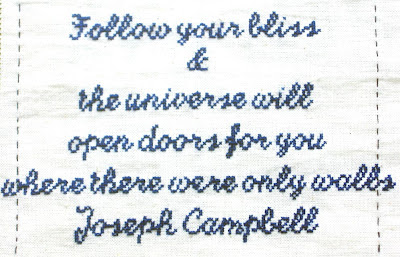 Follow your bliss
&
the universe will
open doors for you
where there were only walls
Joseph Campbell